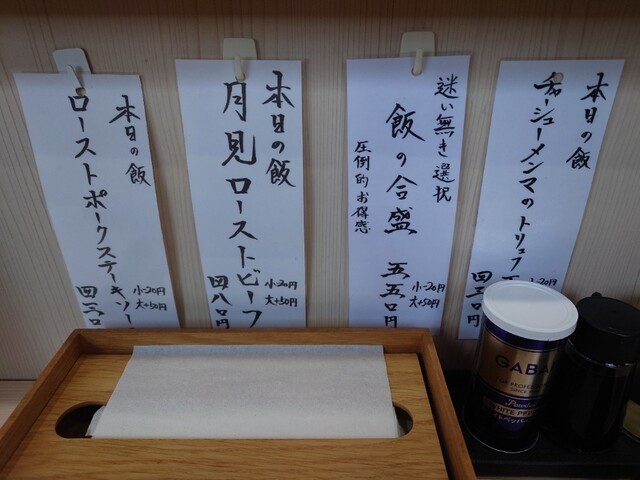 本日の飯
チャーシューメンマのトリュフ
小-20円
迷い無き選択
飯の合盛
圧倒的お得感
五五〇円
小-20円
大+50円
本日の飯
月見ローストビーフ
四八〇円
小-20円
大+50円
本日の飯
ローストポークステーキソー
小-20円
大+50円
GABA
WHITE PEP